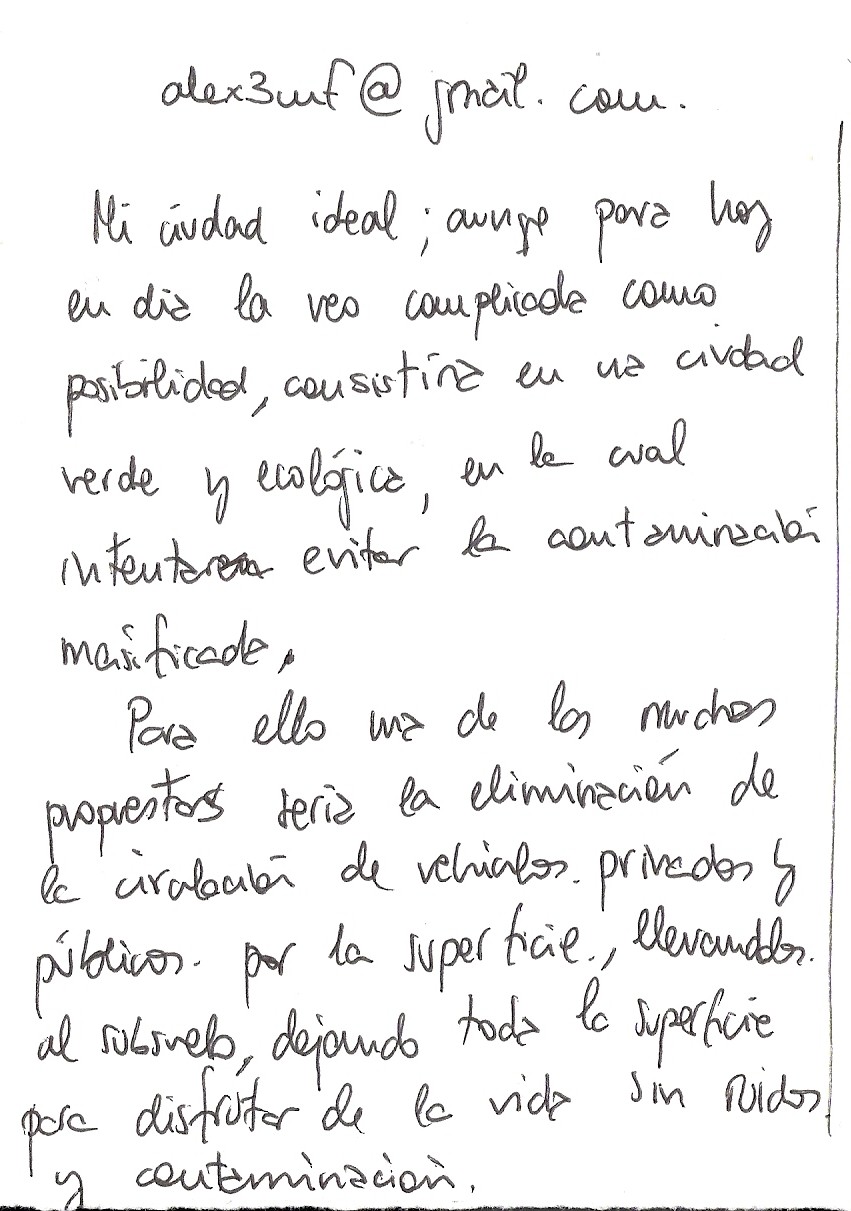 alex3wf@gmail.com.
Mi ciudad ideal; aunqe para hoy
en dia la veo complicada como
posibilidad, consistiría en una ciudad
verde y ecológica, en la cual
intentaran evitar la contaminación
masificada.
Para ello una de las muchas
propuestas seria la eliminación de
la circulación de vehiculos. privados y
públicos. por la superficie., llevandolos.
al subsuelo, dejando toda la superficie
para disfrutar de la vida sin ruidos
y contaminación.